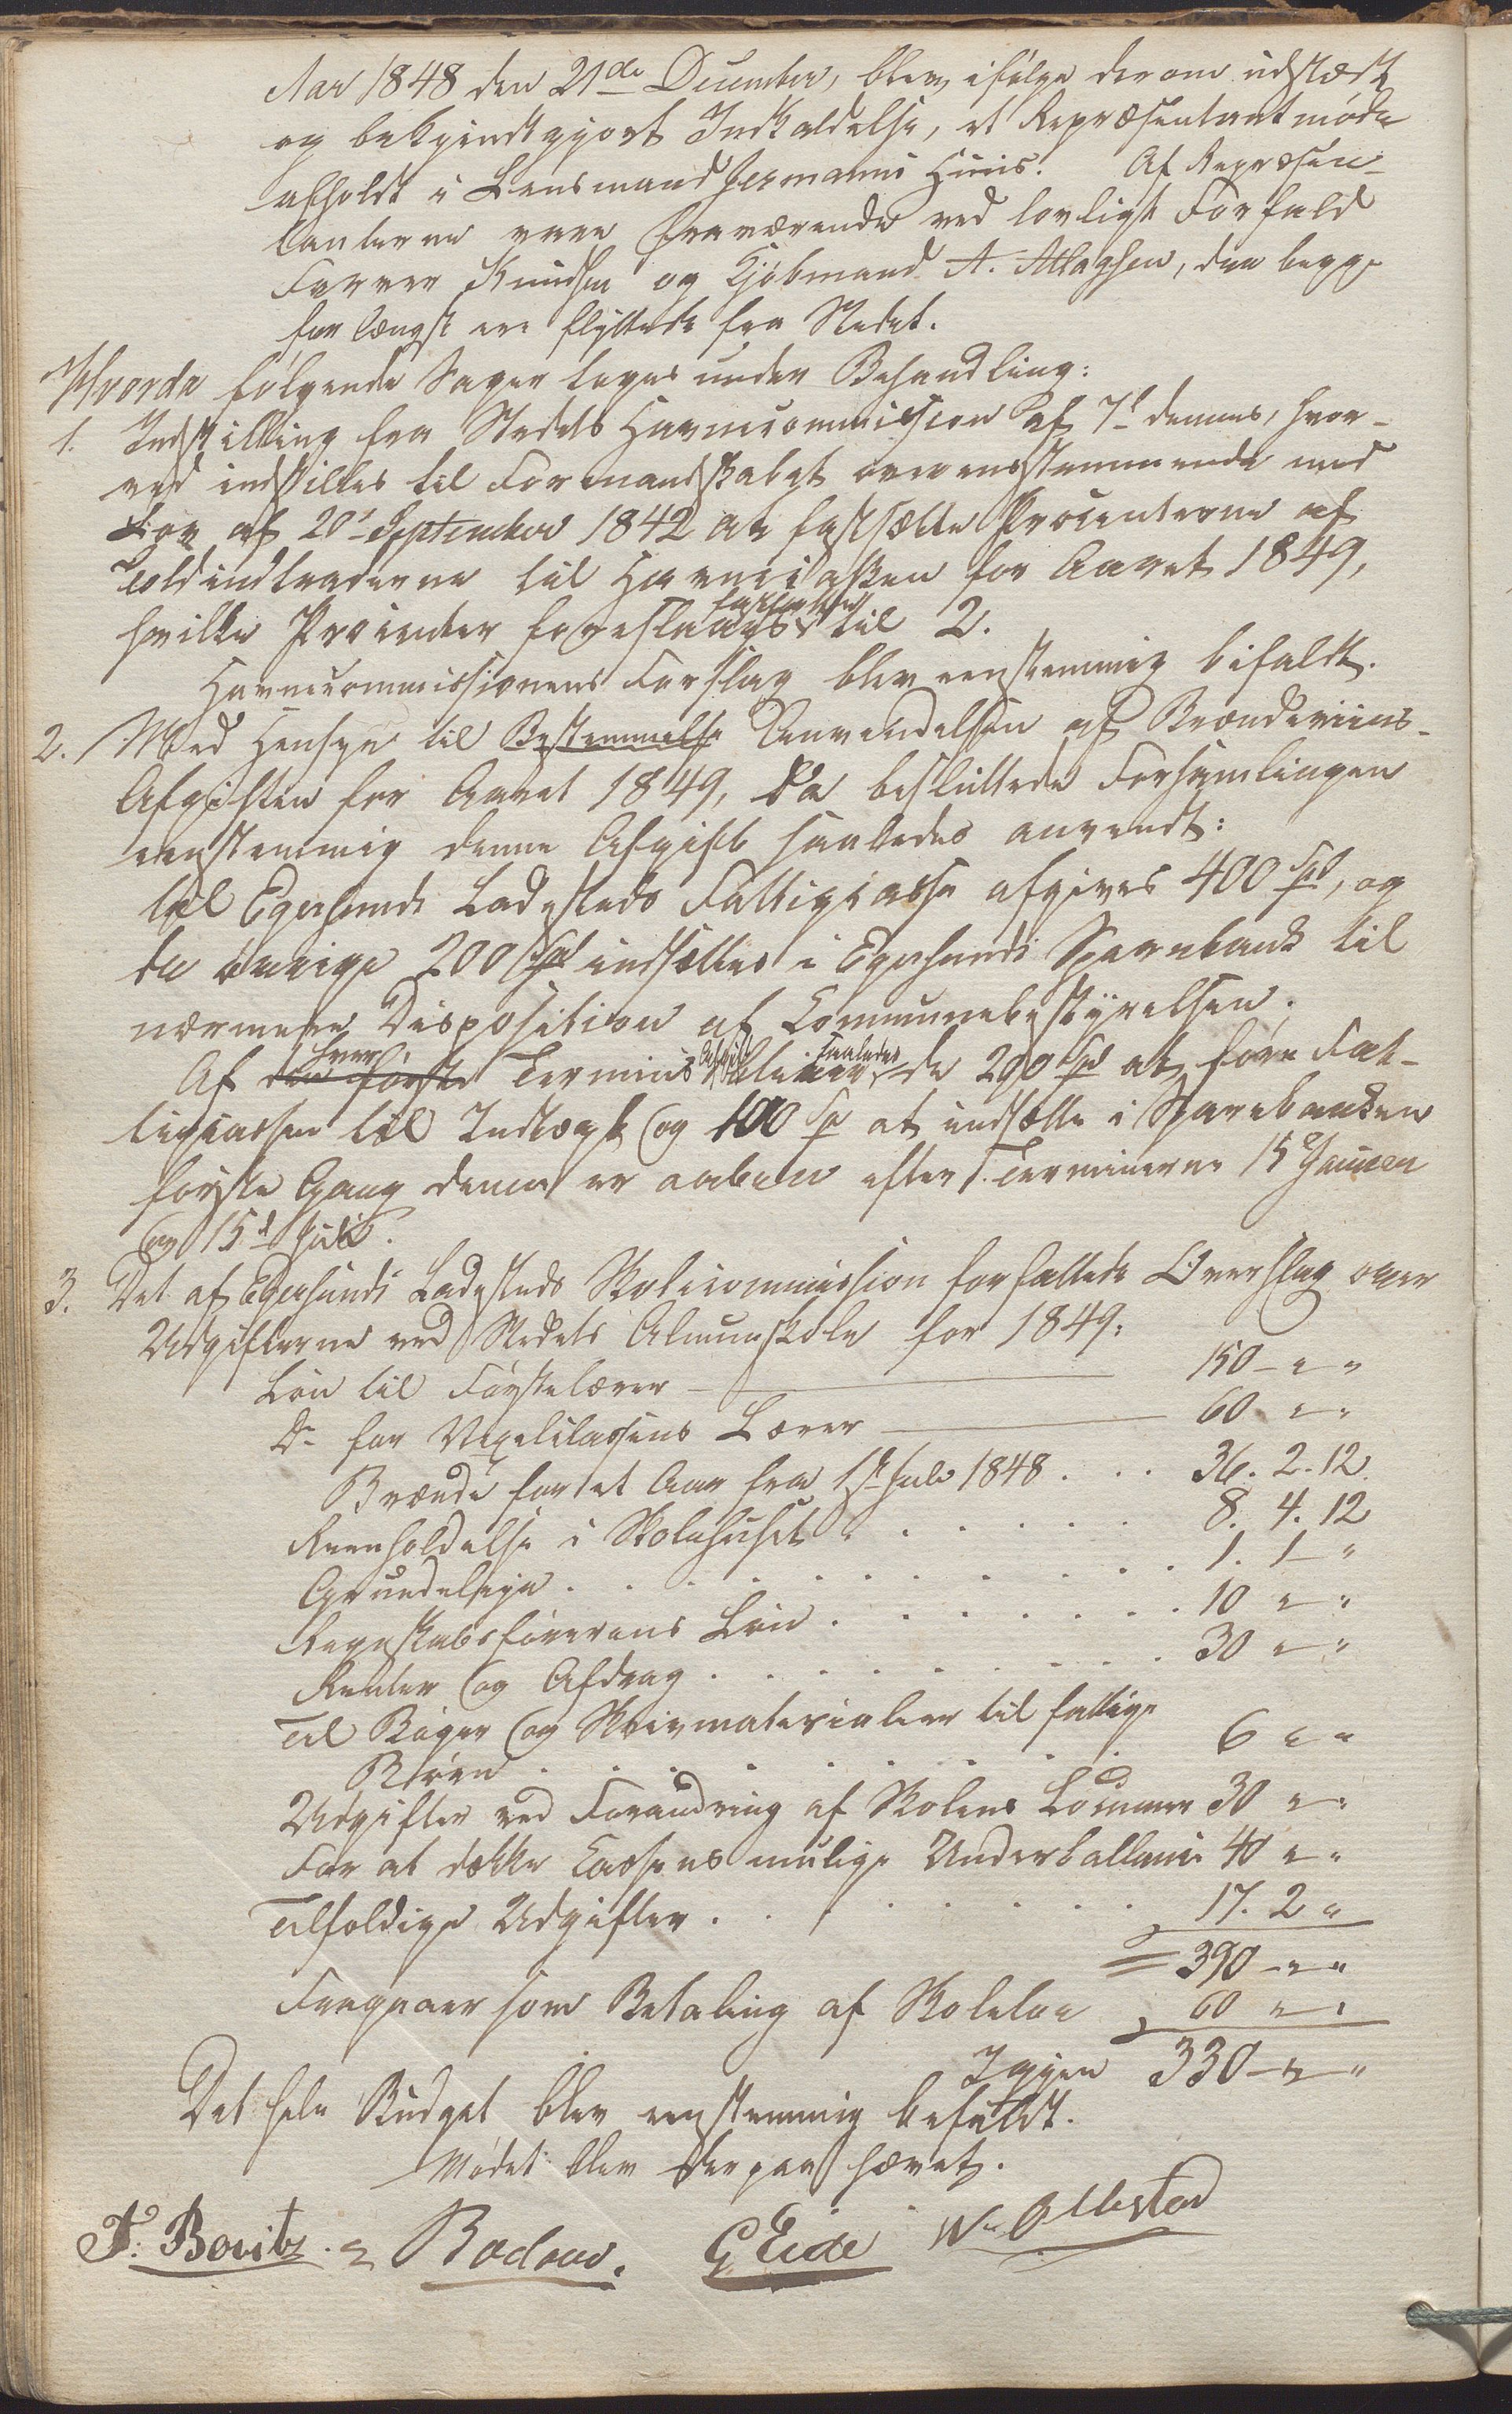 Aar 1848 den 21de December, blev ifølge derom udstædt
og bekjendtgjort Indkaldelse, et Repræsentantmøde
afholdt i Lensmand Jermanns Huus. Af Repræsen-
tanterne vare fraværende ved lovligt Forfald
Farver Knudsen og Kjøbmand A. , da begge
for længst ere flyttede fra Stedet.
Hvorda følgende Sager toges under Behandling:
1. Indstilling fra Stedets Havnecommission af 7d dennes, hvor-
ved indstilles til Formandskabet overensstemmende med
Lov af 20d September 1842 at fastsætte Procenterne af
Toldindtraderne til Havnecassen for Aaret 1849,
hvilke Procenter foreslaaes fastsatte til 2.
Havnecommissionens Forslag blev eenstemmig bifaldt.
2. Med Hensyn til Bestemmelse Anvendelsen af Brændeviins-
Afgiften for Aaret 1849, da besluttede Forsamlingen
eenstemmig denne Afgift saaledes anvendt:
til Egersunds Ladesteds Fattigcasse afgives 400 Spd, og
de øvrige 200 Spd indsættes i Egersunds Sparebank til
nærmere Disposition af Communebestyrelsen.
Af den første hver Termins Afgift bliver saaledes de 200 Spd at føre Fat-
tigcassen til Indtægt og 100 Sp at indsætte i Sparebanken
første Gang denne er aaben efter Terminerne 15de Januar
og 15d Juli.
3. Det af Egersunds Ladesteds Skolecommission forfattede Overslag over
Udgifterne ved Stedets Almueskole for 1849:
Løn til Førstelærer — 150 - " - "
Do for Vexelclassens Lærer — 60 " - "
Brænde for et Aar fra 1ste Juli 1848 . . . 36. 2. 12.
Reenholdelse i Skolehuset . . . . . . 8. 4. 12
Grundeleje . . . . . . . . . . 1. 1 - "
Regnskabsførerens Løn . . . . . . . 10 " - "
Renter og Afdrag . . . . . . . . . 30 " - "
Til Bøger og Skrivmaterialier til fattige
Børn . . . . . . . . 6 " "
Udgifter ved Forandring af Skolens Locummer 30 " - "
For at dække Cassens mulige Underballance 40 " - "
Tilfældige Udgifter . . . . . . . . 17. 2 "
= 390 - " - "
Fragaaer som Betaling af Skoleloe 60 " - "
Igjen 330 - " - "
Det hele Budget blev eenstemmig bifaldt.
Mødet blev derpaa hævet.
F. Bovitz. Bodom. G Eide Wm Ollestad